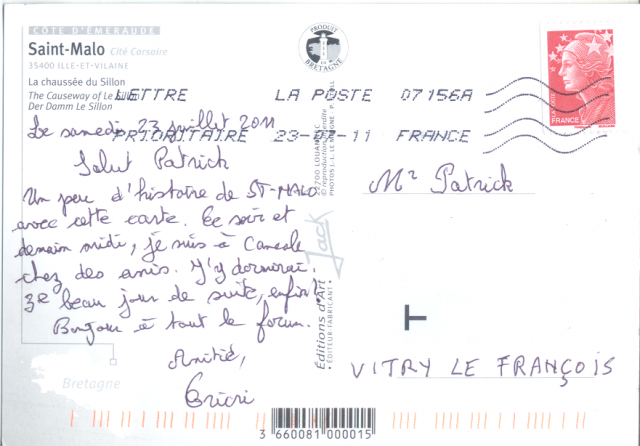 CÔTE D'ÉMERAUDE
Saint-Malo Cité Corsaire
35400 ILLE-ET-VILAINE
La chaussée du Sillon
The Causeway of Le Sillon
Der Damm Le Sillon
PRODUIT
BRETAGNE
LETTRE LA POSTE 07156A
PRIORITAIRE 23-07-11 FRANCE
FRANCE
Le samedi 23 juillet 2011
Salut Patrick
Un peu d'histoire de ST-MALO
avec cette carte. Ce soir et
demain midi, je suis à Cancale
chez des amis. J'y dormirai.
3e beau jour de suite, enfin!
Bonjour à tout le forum.
Amitié,
Cricri
Mr Patrick
T
VITRY LE FRANÇOIS
Editions d'Art Jack
• ÉDITEUR-FABRICANT •
reproduction interdite
Bretagne
3 660081 000015